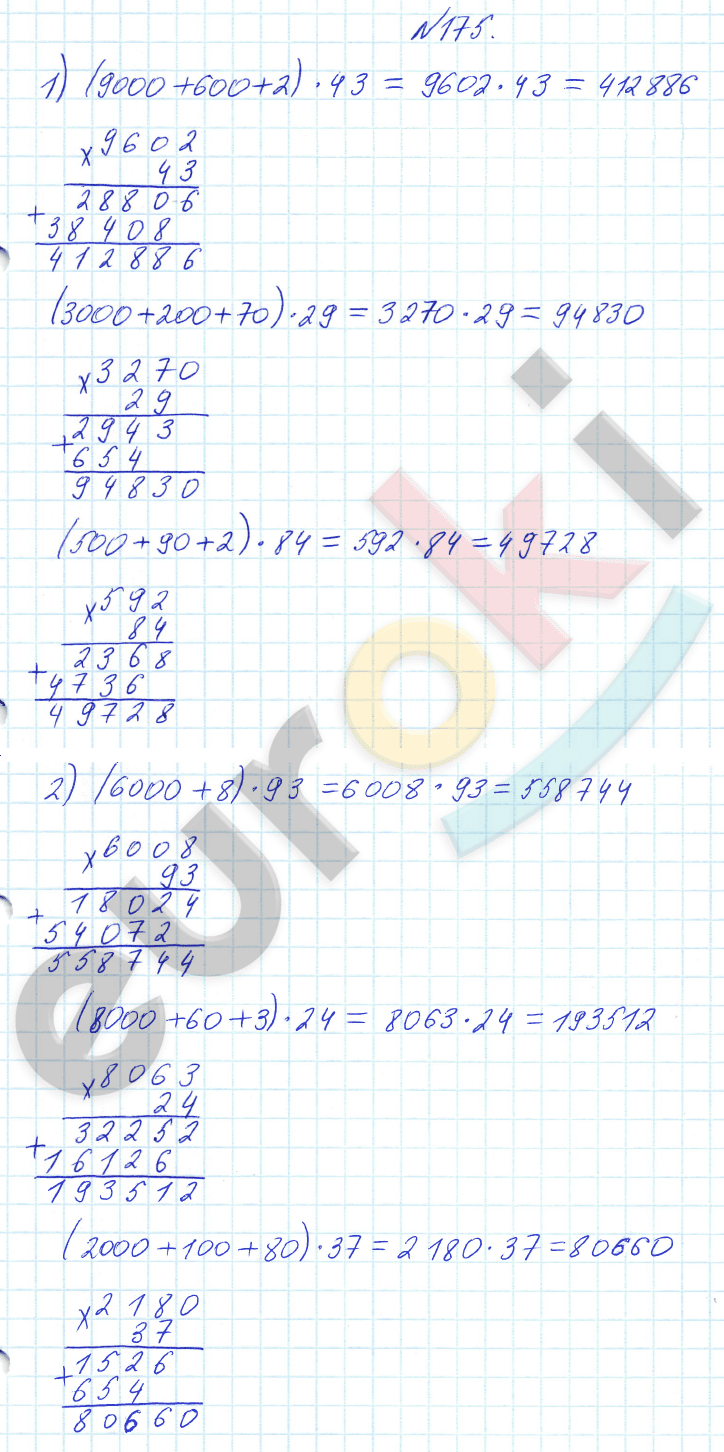 №175.
1) (9000+600+2)·43 = 9602·43 = 412886
×9602
43
28806
+
38408
412886
(3000+200+70)·29 = 3270·29 = 94830
×3270
29
2943
+
654
94830
(500+90+2)·84 = 592·84 = 49728
×592
84
2368
+
4736
49728
2) (6000+8)·93 = 6008·93 = 558744
×6008
93
18024
+
54072
558744
(8000+60+3)·24 = 8063·24 = 193512
×8063
24
32252
+
16126
193512
(2000+100+80)·37 = 2180·37 = 80660
×2180
37
1526
+
654
80660
euroki